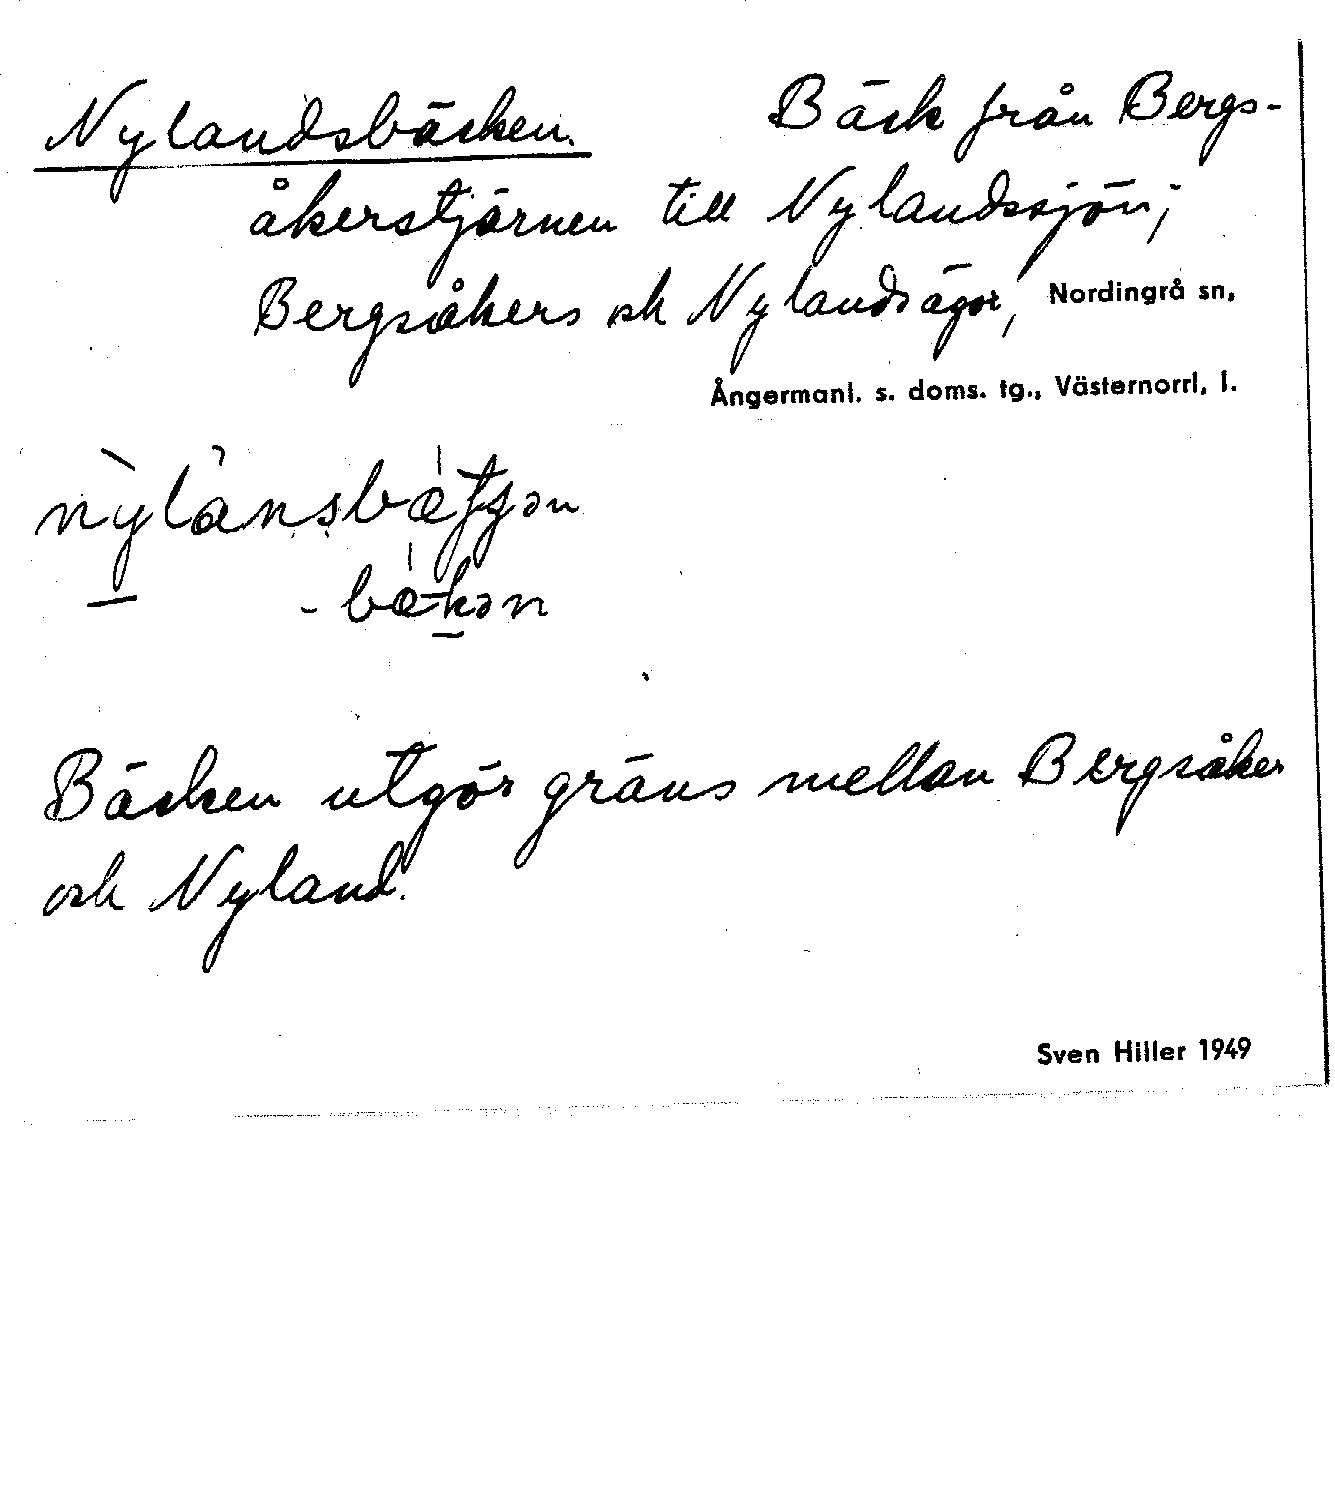 Nylandsbäcken. Bäck från Bergs-
åkerstjärnen till Nylandssjön;
Bergsåkers och Nylands ägor, Nordingrå sn,
Ångermanl. s. doms. tg., Västernorrl. l.
Bäcken utgör gräns mellan Bergsåker
och Nyland.
Sven Hiller 1949